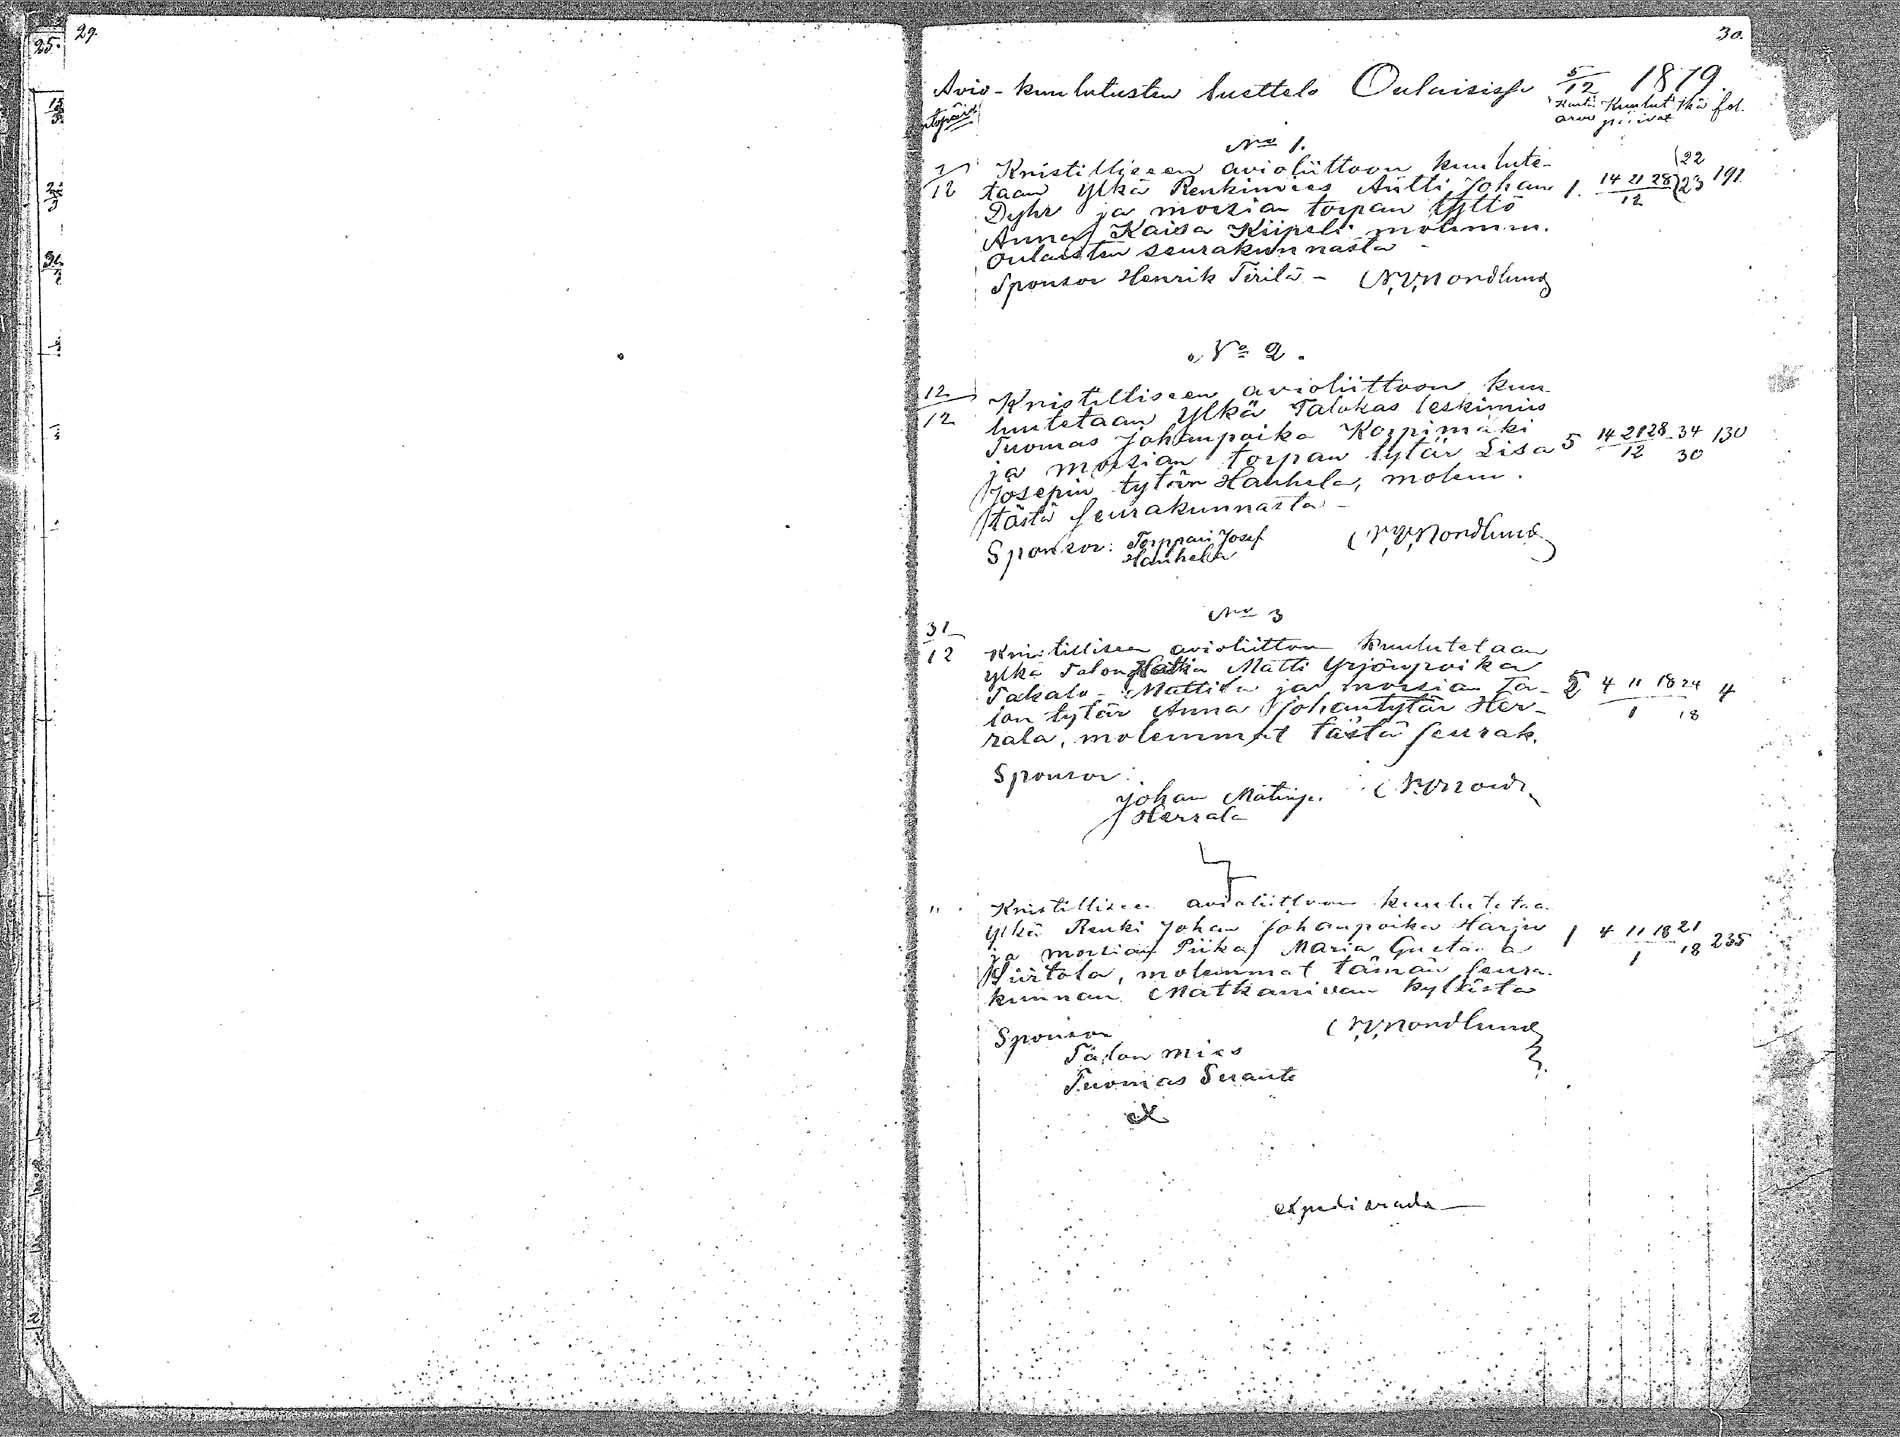 29.
25.
30.
Avio-kuulutusten luettelo Oulaisissa 5/12 1879.
Kuulut. Ikä fol.
arvo päivät
No 1.
12 Kristilliseen avioliittoon kuulute-
taan Ylkä Renkimies Antti Johan 1. 14 21 28/12 22 23 191
Dyhr ja morsian torpan tyttö
Anna Kaisa Kiipeli molemm.
Oulaisten seurakunnasta
Sponsor Henrik Tirilä - N.V. Nordlund
No 2.
12/12 Kristilliseen avioliittoon kuu-
lutetaan Ylkä Talokas leskimies
Tuomas Johanpoika Korpimäki
ja morsian torpan tytär Lisa 5 14 21 28/12 34 30 130
Josepin tytär Hanhela, molem.
tästä seurakunnasta -
Sponsor: Torppari Josef N.V. Nordlund
Hanhela
No 3
31/12 Kristilliseen avioliittoon kuulutetaan
ylkä Talon Matti Yrjönpoika
Takalo-Mattila ja morsian Ta- 4 11 18/1 24 18 4
lon tytär Anna Johantytär Her-
rala, molemmat tästä seurak.
Sponsor:
Johan Matinp. N.V. Nord
Herrala
4
" Kristilliseen avioliittoon kuulutetaa
Ylkä Renki Johan Johanpoika Harju 1 4 11 18/1 21 18 235
ja morsian Piika Maria Gustava
Siirtola, molemmat tämän seura-
kunnan Matkanivan kylästä
Sponsor N.V. Nordlund
Talon mies
Tuomas
expedierade